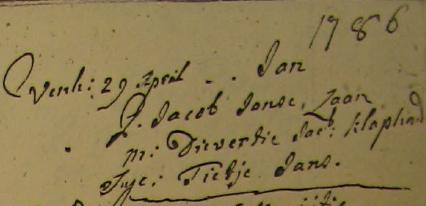 1786
Venh: 29 April .. Jan
J. Jacob Janse, Zaan
m: Dievertie Jac: Klaphed
Tuge: Tietje Jans.